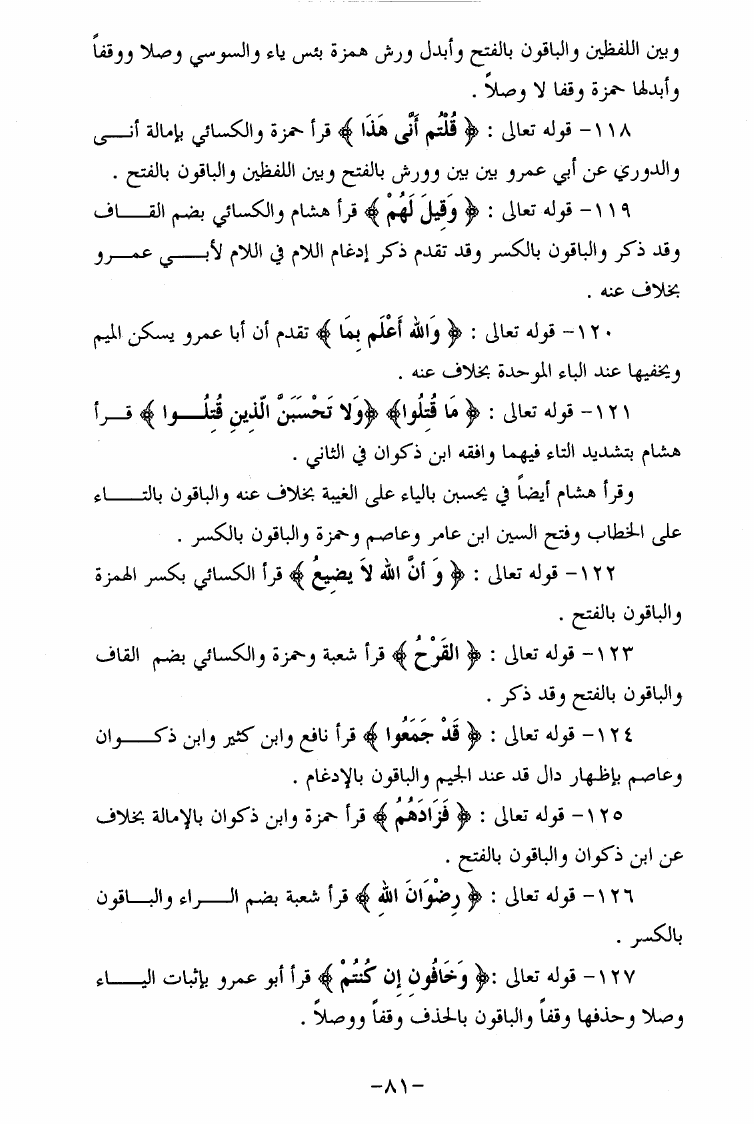 وبين اللفظين والباقون بالفتح وأبدل ورش همزة بئس ياء والسوسي وصلا ووقفاً
وأبدلها حمزة وقفا لا وصلاً .
١١٨- قوله تعالى : ﴿ قُلْتُم أَنَّى هَذَا ﴾ قرأ حمزة والكسائي بإمالة أنـــى
والدوري عن أبي عمرو بين بين وورش بالفتح وبين اللفظين والباقون بالفتح .
١١٩- قوله تعالى : ﴿ وَقِيلَ لَهُمْ ﴾ قرأ هشام والكسائي بضم القـــاف
وقد ذكر والباقون بالكسر وقد تقدم ذكر إدغام اللام في اللام لأبـــي عمـــرو
بخلاف عنه .
١٢٠- قوله تعالى : ﴿ وَالله أَعْلَم بِمَا ﴾ تقدم أن أبا عمرو يسكن الميم
ويخفيها عند الباء الموحدة بخلاف عنه .
١٢١- قوله تعالى : ﴿ مَا قُتِلُوا﴾ ﴿وَلا تَحْسَبَنَّ الّذِينِ قُتِلُـــوا ﴾ قـــرأ
هشام بتشديد التاء فيهما وافقه ابن ذكوان في الثاني .
وقرأ هشام أيضاً في يحسبن بالياء على الغيبة بخلاف عنه والباقون بالتـــاء
على الخطاب وفتح السين ابن عامر وعاصم وحمزة والباقون بالكسر .
١٢٢- قوله تعالى : ﴿ وَ أنَّ الله لاَ يضِيعُ ﴾ قرأ الكسائي بكسر الهمزة
والباقون بالفتح .
١٢٣- قوله تعالى : ﴿ القَرْحُ ﴾ قرأ شعبة وحمزة والكسائي بضم القاف
والباقون بالفتح وقد ذكر .
١٢٤- قوله تعالى : ﴿ قَدْ جَمَعُوا ﴾ قرأ نافع وابن كثير وابن ذكـــوان
وعاصم بإظهار دال قد عند الجيم والباقون بالإدغام .
١٢٥- قوله تعالى : ﴿ فَزَادَهُمُ ﴾ قرأ حمزة وابن ذكوان بالإمالة بخلاف
عن ابن ذكوان والباقون بالفتح .
١٢٦- قوله تعالى : ﴿ رِضْوَانَ اللهِ ﴾ قرأ شعبة بضم الـــراء والبـــاقون
بالكسر .
١٢٧- قوله تعالى :﴿ وَخَافُونِ إِن كُنْتُمْ ﴾ قرأ أبو عمرو بإثبات اليـــاء
وصلا وحذفها وقفاً والباقون بالحذف وقفاً ووصلاً .
-٨١-